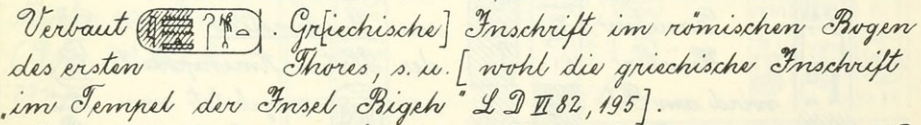 Verbaut . Gr[iechische] Inschrift im römischen Bogen
des ersten Thores, s. u. [wohl die griechische Inschrift
„im Tempel der Insel Bigeh" L D VI 82, 195].